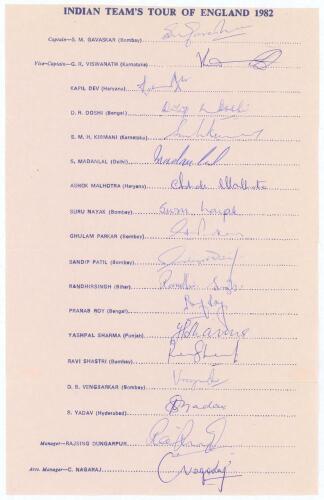 INDIAN TEAM'S TOUR OF ENGLAND 1982
Captain—S. M. GAVASKAR (Bombay)
Vice-Captain—G. R. VISWANATH (Karnataka)
KAPIL DEV (Haryana)
D. R. DOSHI (Bengal)
S. M. H. KIRMANI (Karnataka)
S. MADANLAL (Delhi) Madan Lal
ASHOK MALHOTRA (Haryana) Ashok Malhotra
SURU NAYAK (Bombay) Suru Nayak
GHULAM PARKAR (Bombay)
SANDIP PATIL (Bombay)
RANDHIRSINGH (Bihar) Randhir Singh
PRANAB ROY (Bengal)
YASHPAL SHARMA (Punjab)
RAVI SHASTRI (Bombay)
D. B. VENGSARKAR (Bombay)
S. YADAV (Hyderabad) S Yadav
Manager—RAJSING DUNGARPUR
Asst. Manager—C. NAGARAJ C Nagaraj